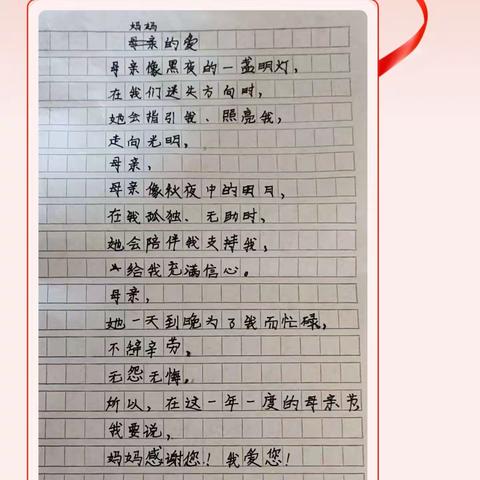 妈妈
母亲的爱
母亲像黑夜的一盏明灯，
在我们迷失方向时，
她会指引我、照亮我，
走向光明，
母亲，
母亲像秋夜中的明月，
在我孤独、无助时，
她会陪伴我支持我，
给我充满信心。
母亲，
她一天到晚为了我而忙碌，
不辞辛劳，
无怨无悔。
所以，在这一年一度的母亲节
我要说，
妈妈感谢您！我爱您！